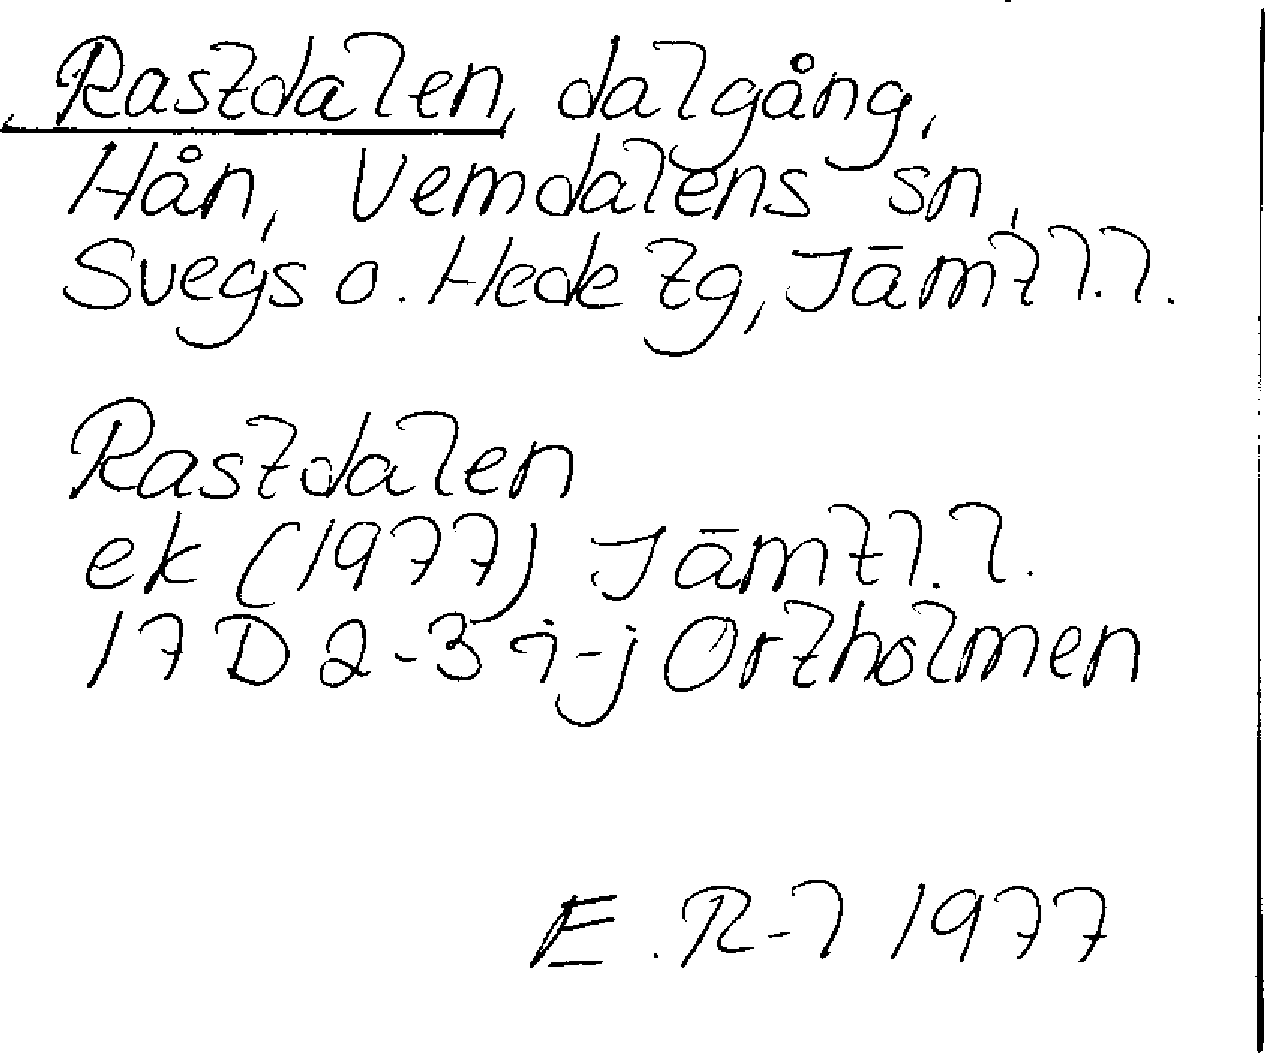 Rastdalen, dalgång,
Hån, Vemdalens sn,
Svegs o. Hede tg, Jämtl. l.
Rastdalen
ek (1977) Jämtl. l.
17 D 2-3 i-j Ortholmen
E. R-l 1977